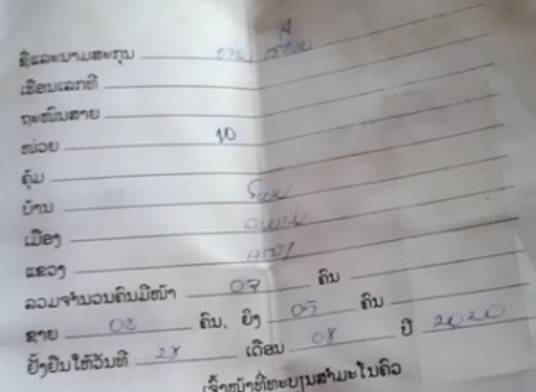 ຊື່ແລະນາມສະກຸນ
ເຮືອນເລກທີ
ຖະໜົນສາຍ
ໜ່ວຍ 10
ຄຸ້ມ
ບ້ານ
ເມືອງ
ແຂວງ
ລວມຈຳນວນຄົນມີໜ້າ 07 ຄົນ
ຊາຍ 02 ຄົນ, ຍິງ 05 ຄົນ
ຢັ້ງຢືນໃຫ້ວັນທີ 28 ເດືອນ 08 ປີ 2020
ເຈົ້າໜ້າທີ່ທະບຽນສຳມະໂນຄົວ